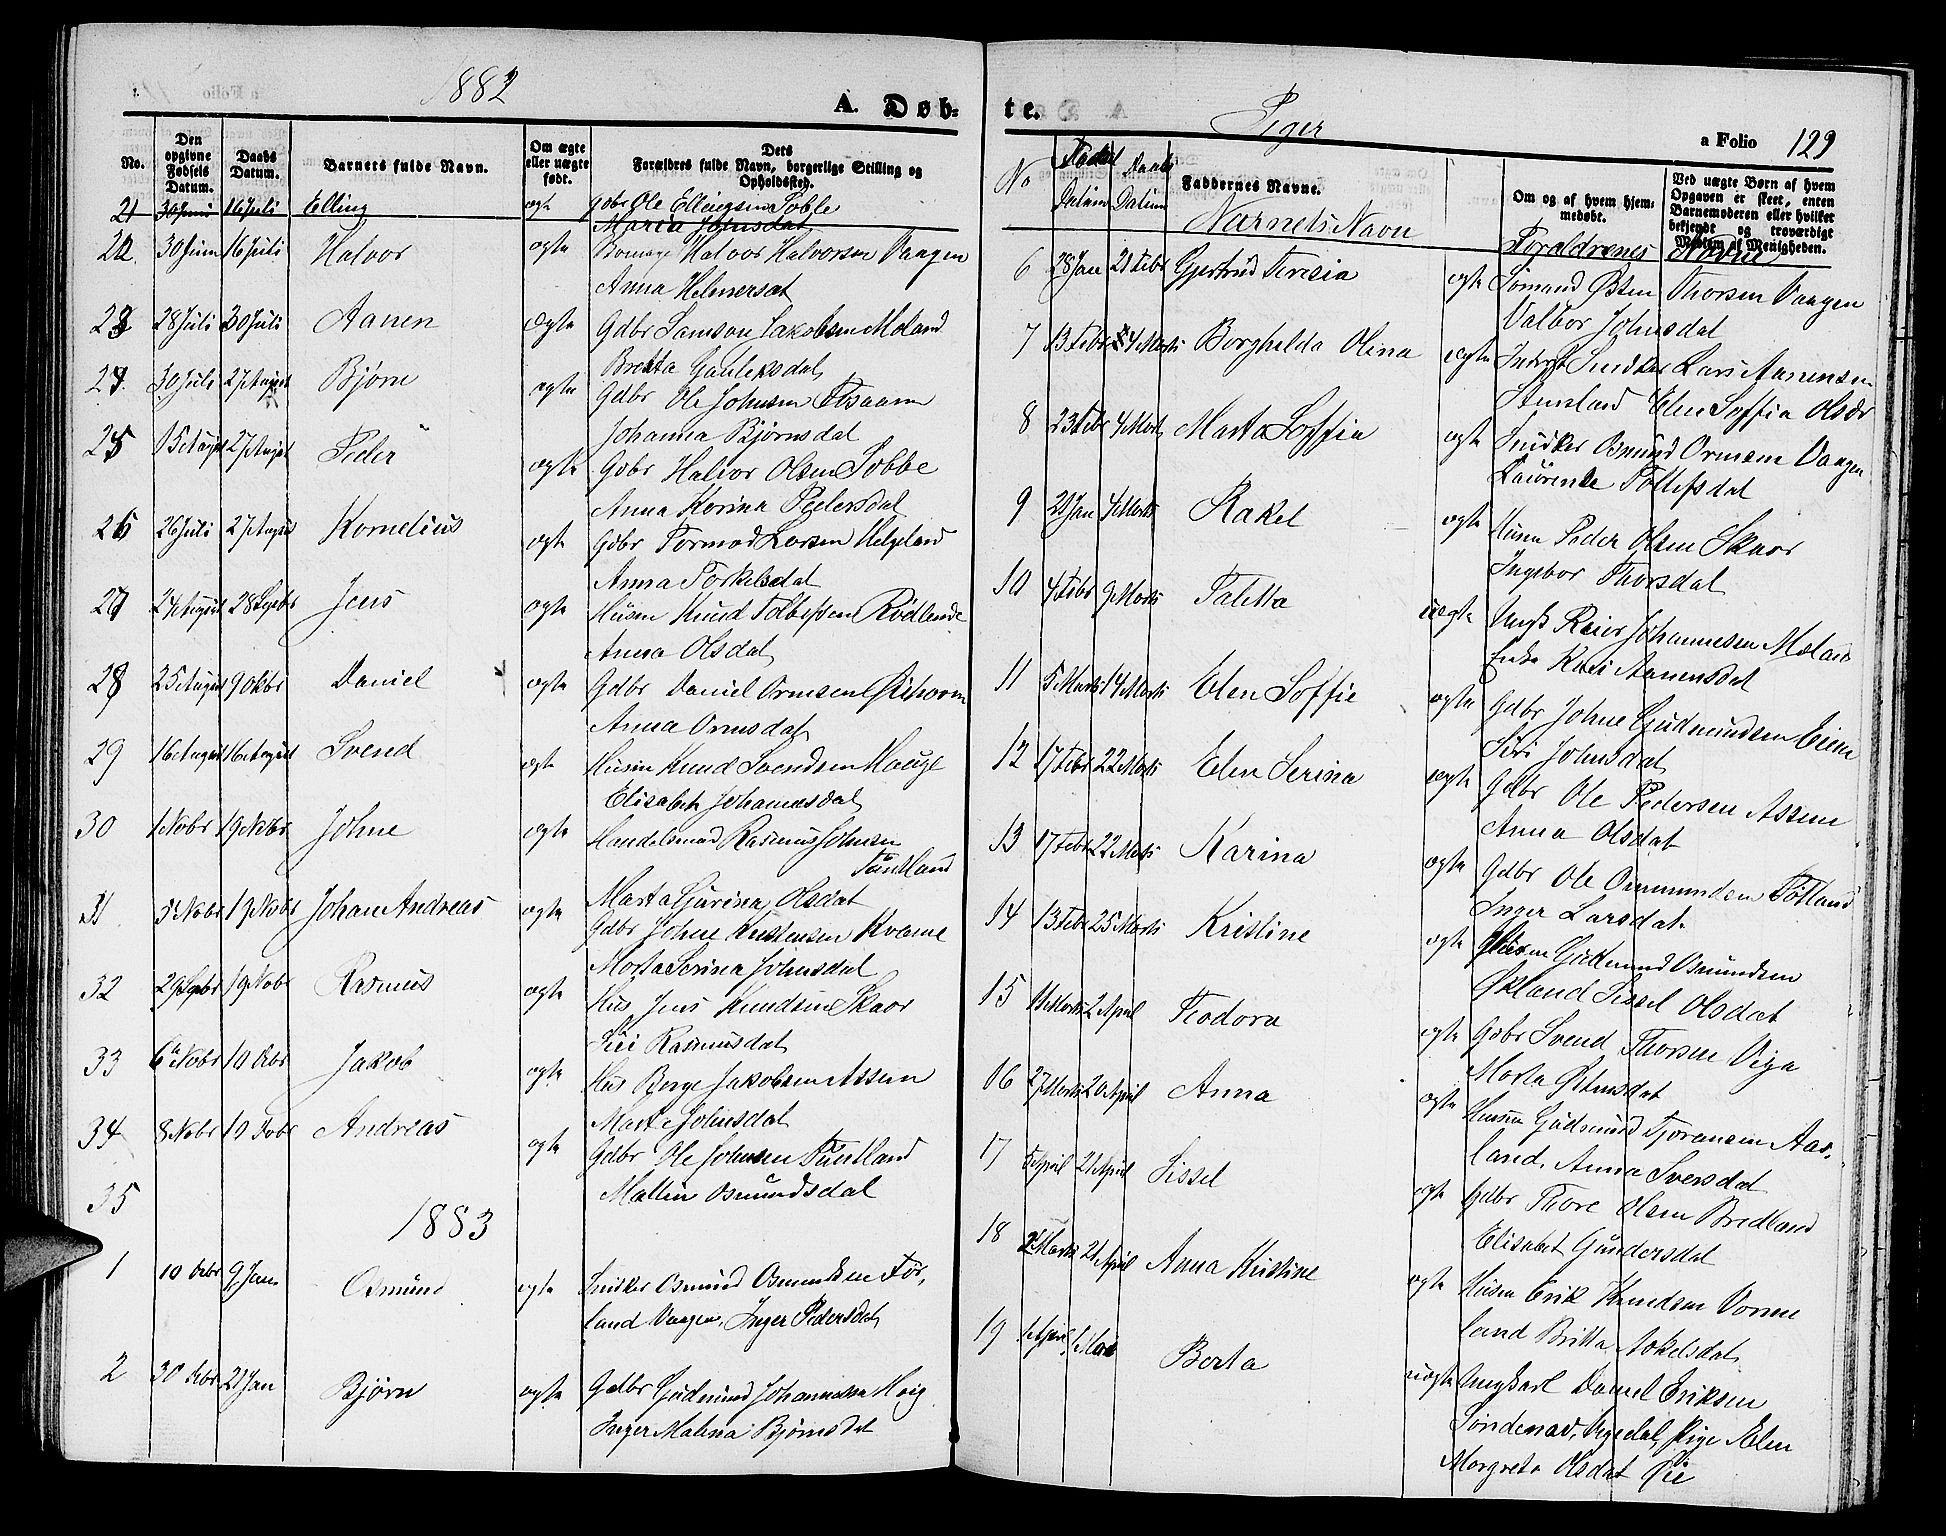 1882
A. Døb-
No.
Den opgivne Fødsels Datum.
Daabs Datum.
Barnets fulde Navn.
Om ægte eller uægte født.
Dets Forældres fulde Navn, borgerlige Stilling og Opholdssted.
21 30 Juni 16 Juli Elling ægte gdbr Ole Ellingsen Sobbe
Maria Johnsdat
22 30 Juni 16 Juli Halvor ægte Halvor Halvorsen Vaagen
Anna Helmersat
23 28 Juli 30 Juli Aanen ægte Gdbr Samson Jakobsen Moland
Gauleksdat
24 30 Juli 27 August Bjørn ægte Gdbr Ole Johnsen
Johanna Bjørnsdal
25 27 August Peder ægte Gdbr Halvor Olsen Sobbe
Anna Korina Pedersdal
26 26 Juli 27 August Kornelius ægte Gdbr Tormod Larsen Helgeland
Anna Torkelsdat
27 24 August 28 Septbr Jens ægte Husm Knud Rødlende
Anna Olsdat
28 25 August 9 Oktbr Daniel ægte Gdbr Daniel Ormsen
Anna Ormsdat
29 16 August 16 August Svend ægte Husm Knud Svendsen Hauge
Elisabet Johannesdat
30 1 Nobr 19 Nobr Johne ægte Handelsmand Rasmus Johnsen
Tuntland
31 5 Nobr 19 Nobr Johan Andreas ægte Marta Gurina Olsdat
Gdbr Johne Kristensen Kvame
32 29 Septbr 19 Nobr Rasmus ægte Marta Serina Johnsdal
Hus Jens Knudsen Skaar
Siri Rasmusdat
33 6 Nobr 10 Dcbr Jakob ægte Hus Børge Jakobsen Assem
Marta Johnsdat
34 8 Nobr 10 Dcbr Andreas ægte Gdbr Ole Johnsen Tuntland
Mallin Osmundsdal
35
1883
1 10 Dcbr 9 Jan Osmund ægte Snidker Osmund Osmundsen Tør,
land Vaagen, Inger Pedersdat
2 30 Dcbr 21 Jan Bjørn ægte Gdbr Gudmund Johannesen Haig
Inger Malena Bjørnsdt
te.
Piger
a Folio 129
No
Fødsel Datum
Daabs Datum
Faddernes Navne.
Navnets Navn
Om og af hvem hjemmedøbt.
Forældrenes Navne
Ved uægte Børn af hvem Opgaven er skeet, enten Barnemoderen eller hvilket bekjendt og troværdigt Medlem af Menigheden.
6 28 Jan 21 Febr Gjertrud Teresia ægte Sømand Østen Thorsen Vaagen
Valbor Johnsdat
7 13 Febr 4 Marts Borghelda Olina ægte Snidker Lars Aanensen
Stensland Elen Soffia Olsdr
8 23 Febr 4 Marts Marta Soffia ægte Snidker Osmund Ormsen Vaagen
Laurense Tollefsdat
9 21 Jan 4 Marts Rakel ægte Husm Peder Olsen Skaar
Ingebor Thorsdat
10 4 Febr 9 Marts Taletta uægte Ungk Reier Johannesen Moland
Enke Kari Aanensdat
11 5 Marts 14 Marts Elen Soffie ægte Gdbr Johne Gudmundsen Eiem
Siri Johnsdat
12 17 Febr 22 Marts Elen Serina ægte Gdbr Ole Pedersen Assem
Anna Olsdat
13 17 Febr 22 Marts Karina ægte Gdbr Ole Ommunden Tøtland
Inger Larsdat
14 13 Febr 25 Marts Kristine ægte Husm Gudmund Osmundsen
Økland Sissel Olsdat
15 11 Marts 2 April Teodora ægte Gdbr Svend Thorsen Viga
Marta Østensdat
16 27 Marts 20 April Anna ægte Husm Gudmund Tjoransen Aas,
land, Anna Sversdat
17 5 April 21 April Sissel ægte Gdbr Thore Olsen Bredland
Elisabet Gundersdat
18 Marts 21 April Anna Kristine ægte Husm Erik Knudsen Vorme
land Britta Askelsdat
19 1 April 1 Mai Berta uægte Ungkarl Daniel Eriksen
Søndenaa, Pige Elen
Margreta Olsdat